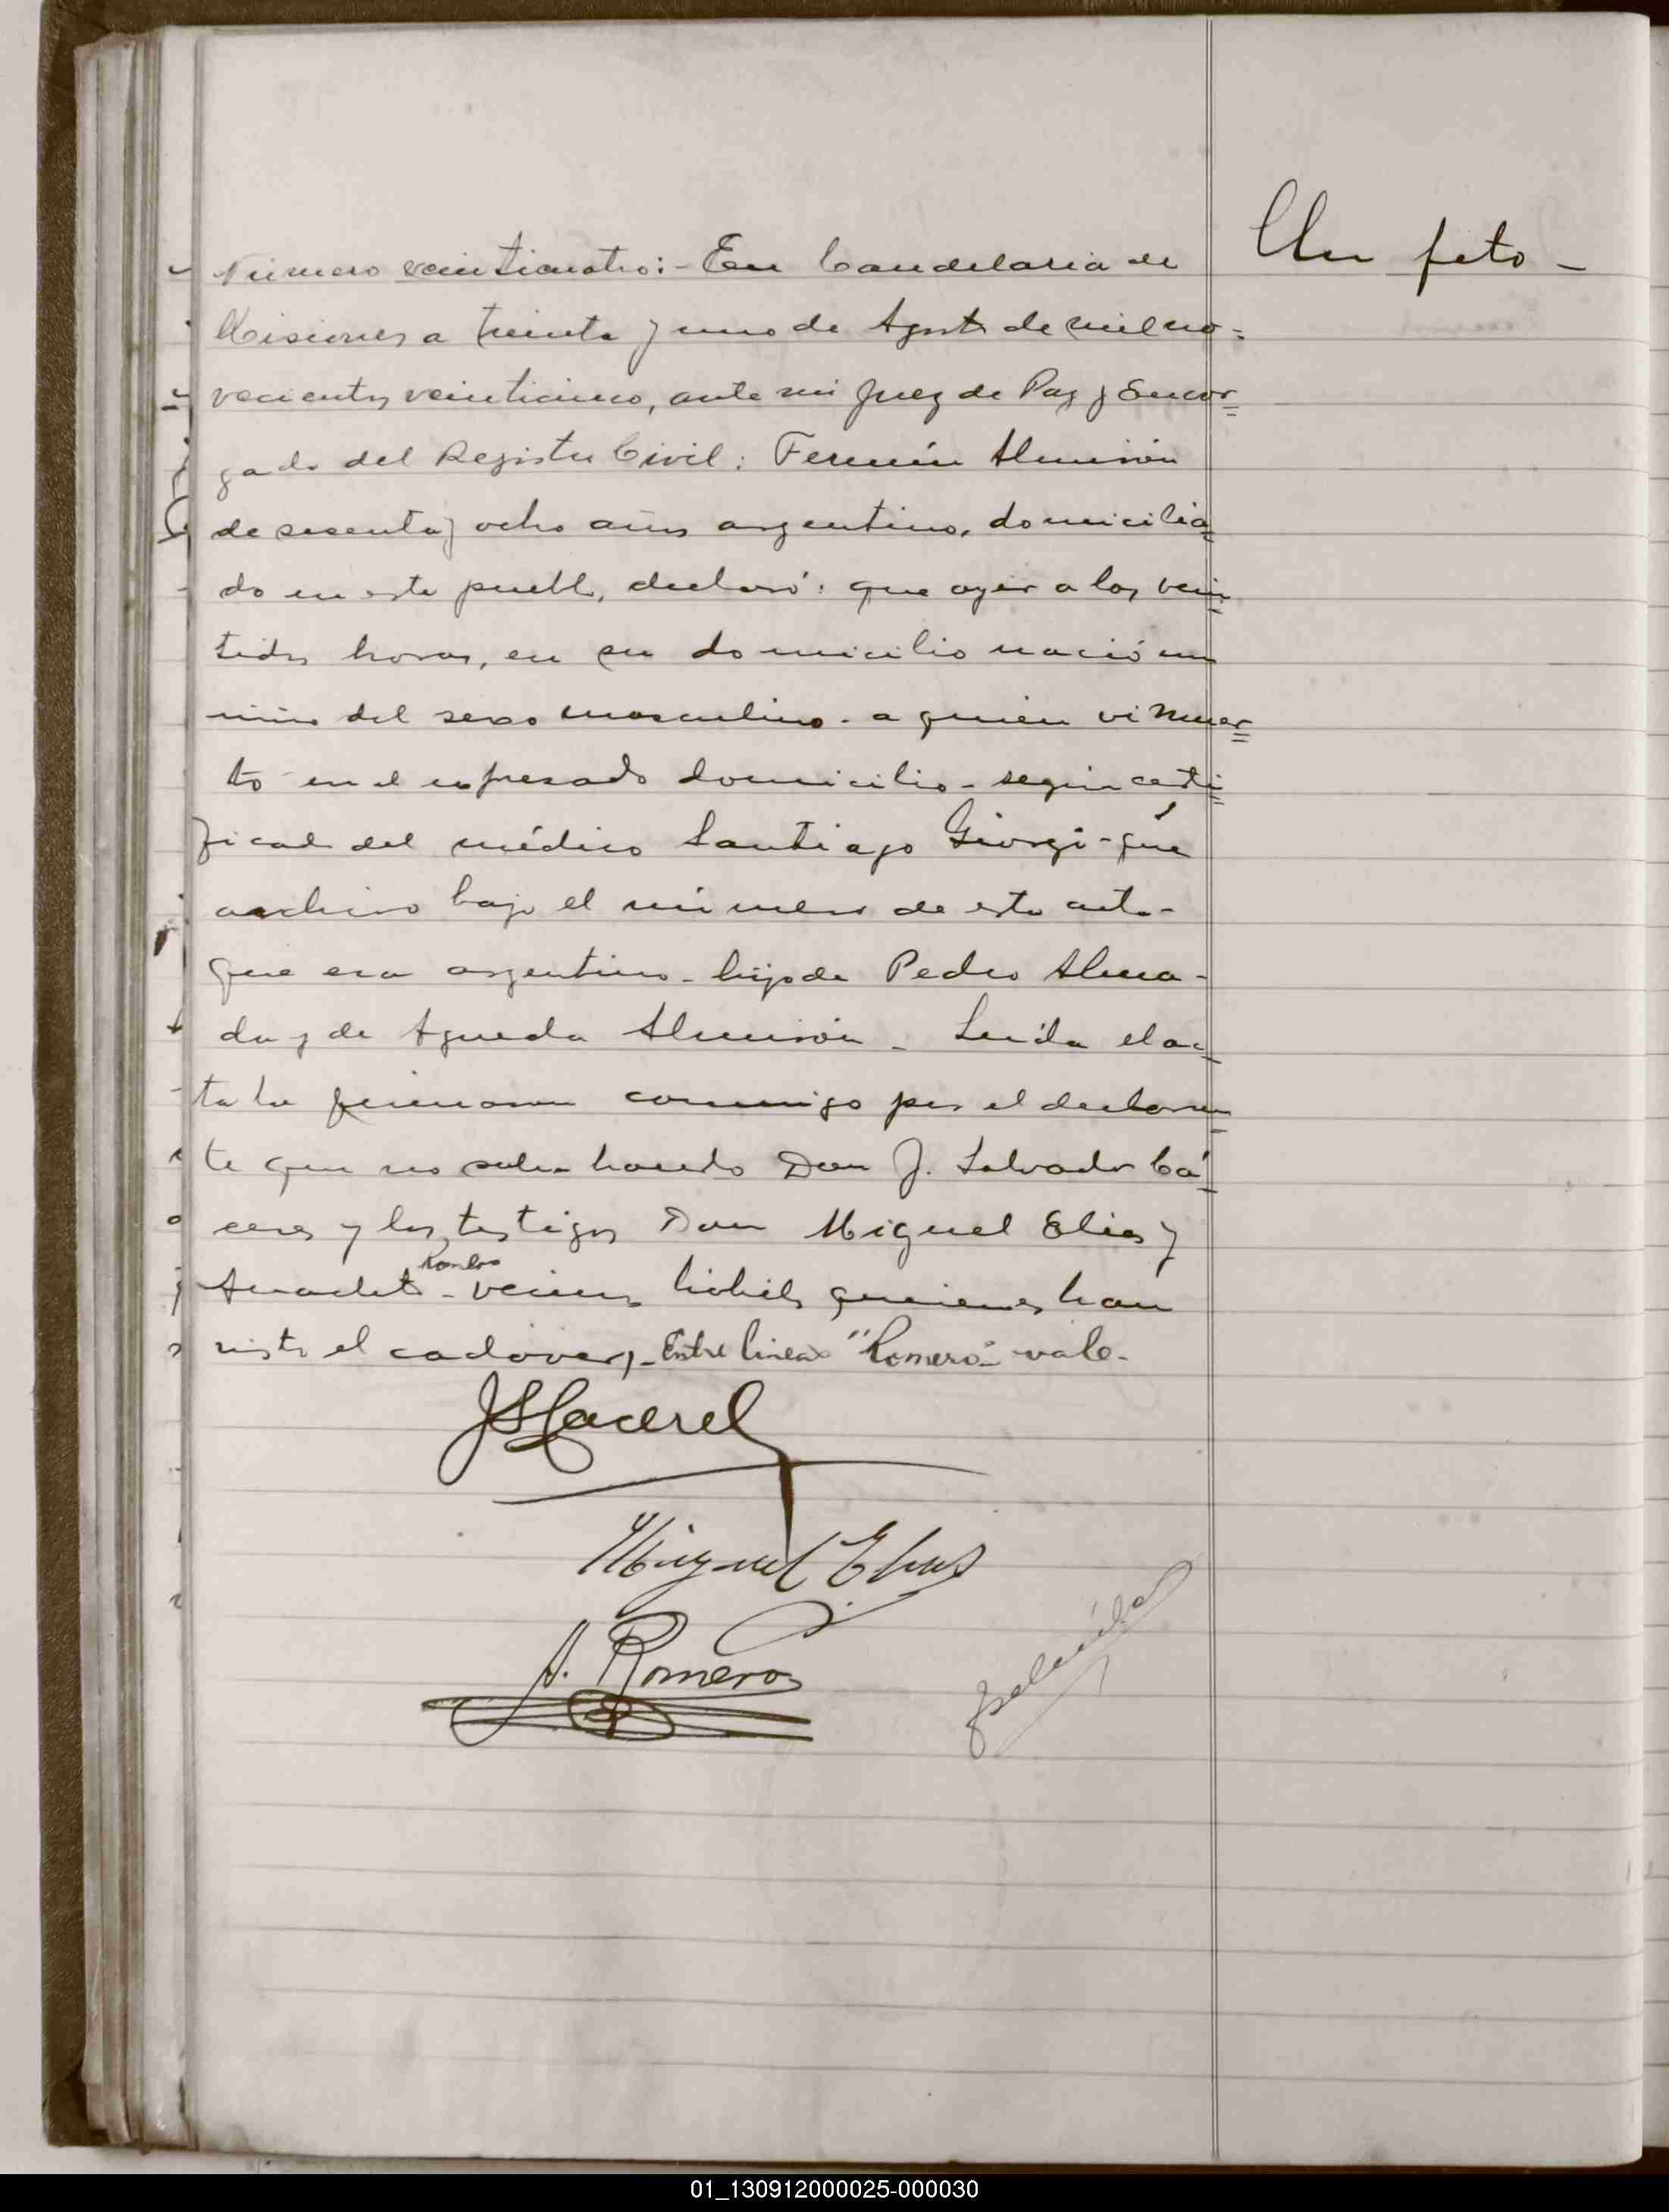 Un feto -
Número veinticuatro:- En Candelaria de
Misiones a treinta y uno de Agosto de mil no=
vecientos veinticinco, ante mi Juez de Paz y Encar=
gado del Registro Civil: Fermín Almirón
de sesenta y ocho años argentino, domicilia=
do en este pueblo, declaró: que ayer a las vein=
tidos horas, en su domicilio nació un
niño del sexo masculino - a quien vi muer=
to en el expresado domicilio - según certi=
ficado del médico Santiago Giorgi - que
archivo bajo el número de esta acta -
que era argentino - hijo de Pedro Alma-
da y de Agueda Almirón - Leída el ac=
ta la firmaron conmigo por el declaran=
te que no sabe hacerlo Don J. Salvador Cá=
ceres y los testigos Don Miguel Elias y
Romero
Anacleto - vecinos hábiles quienes han
visto el cadáver,- Entre lineas "Romero" vale -
JSCaceres
Miguel Elias
A. Romero
01_130912000025-000030